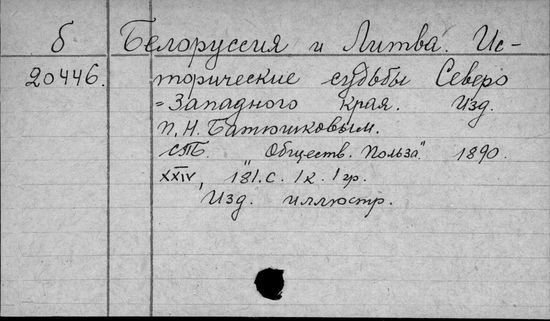 б Белоруссия и Литва. Ис-
20446. торические судьбы Северо
=Западного края. Изд.
П. Н. Батюшковым.
СПБ. "Обществ. Польза". 1890.
XXIV, 181. с. 1 к. 1 гр.
Изд. иллюстр.